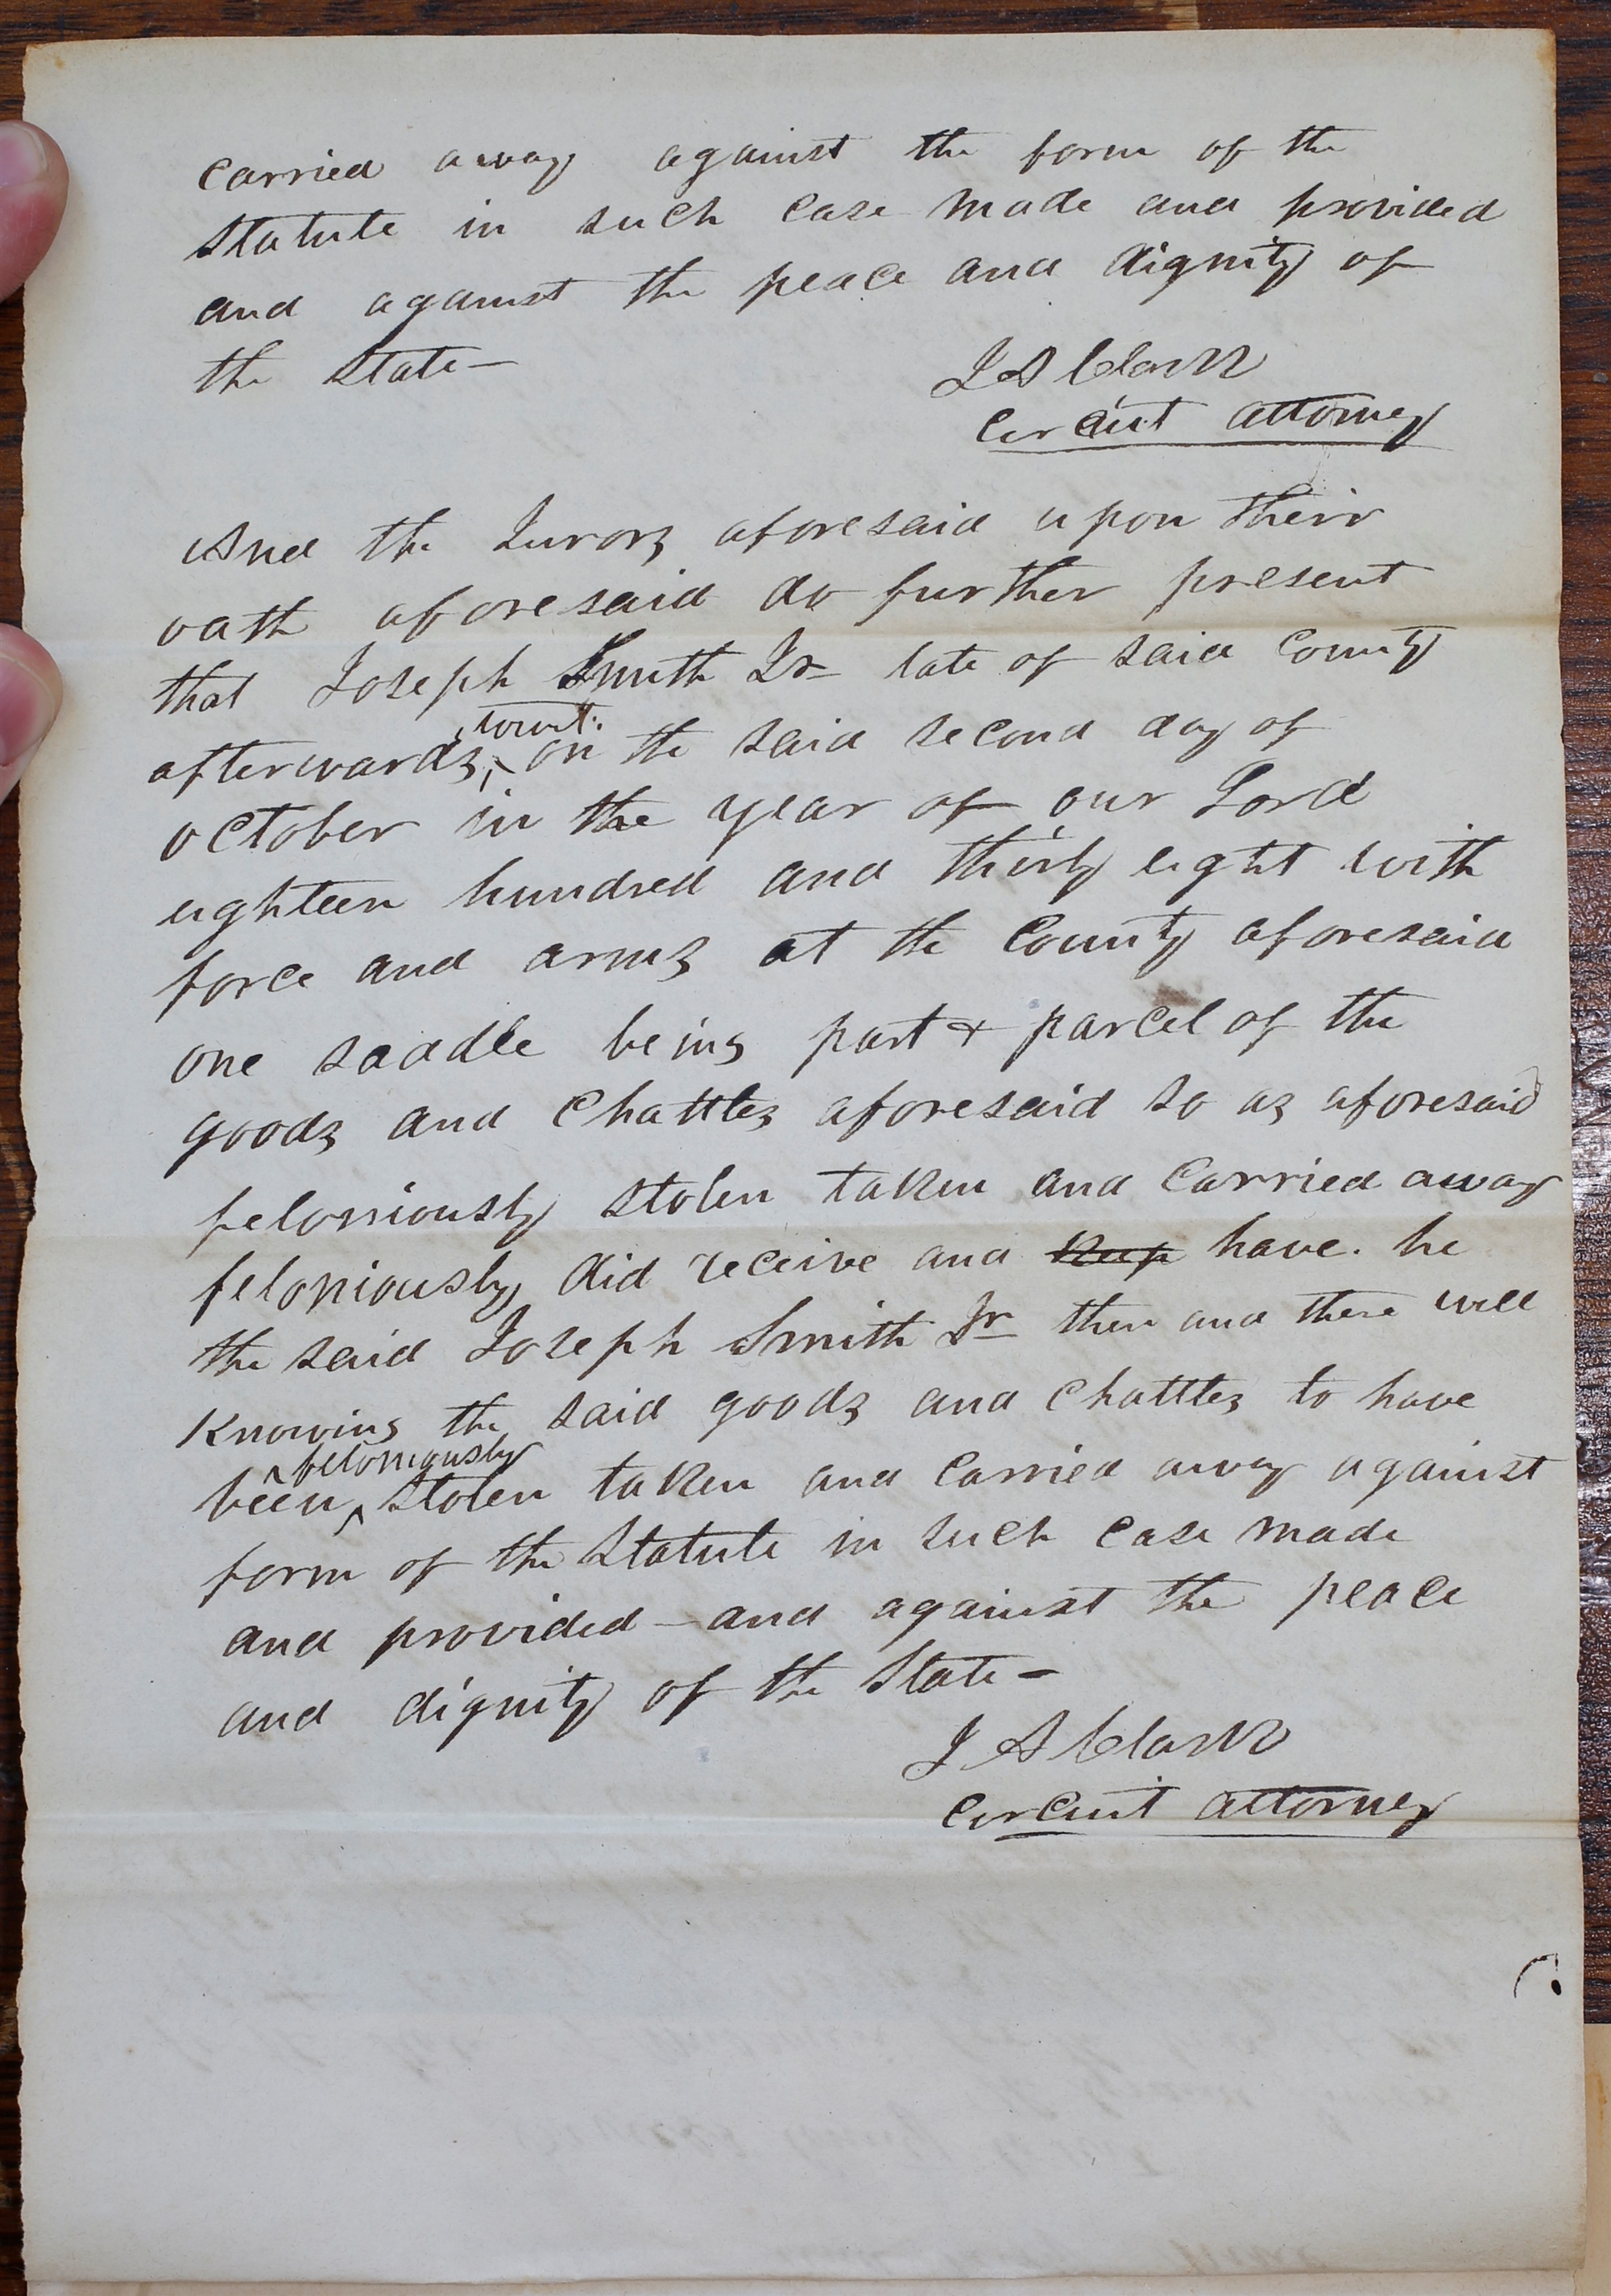 carried away against the form of the
statute in such case made and provided
and against the peace and dignity of
the state—
J A Clark
Circuit attorney
And the Jurors aforesaid upon their
oath aforesaid do further present
that Joseph Smith Jr late of said County
towit.
afterwards, on the said second day of
october in the year of our Lord
eighteen hundred and thirty eight with
force and arms at the County aforesaid
one saddle being part & parcel of the
goods and Chattles aforesaid so as aforesaid
feloniously stolen taken and carried away
feloniously did receive and keep have. he
the said Joseph Smith Jr then and there well
Knowing the said goods and Chattles to have
feloniously
been stolen taken and carried away against
form of the statute in such case made
and provided—and against the peace
and dignity of the State—
J A Clark
Circuit attorney